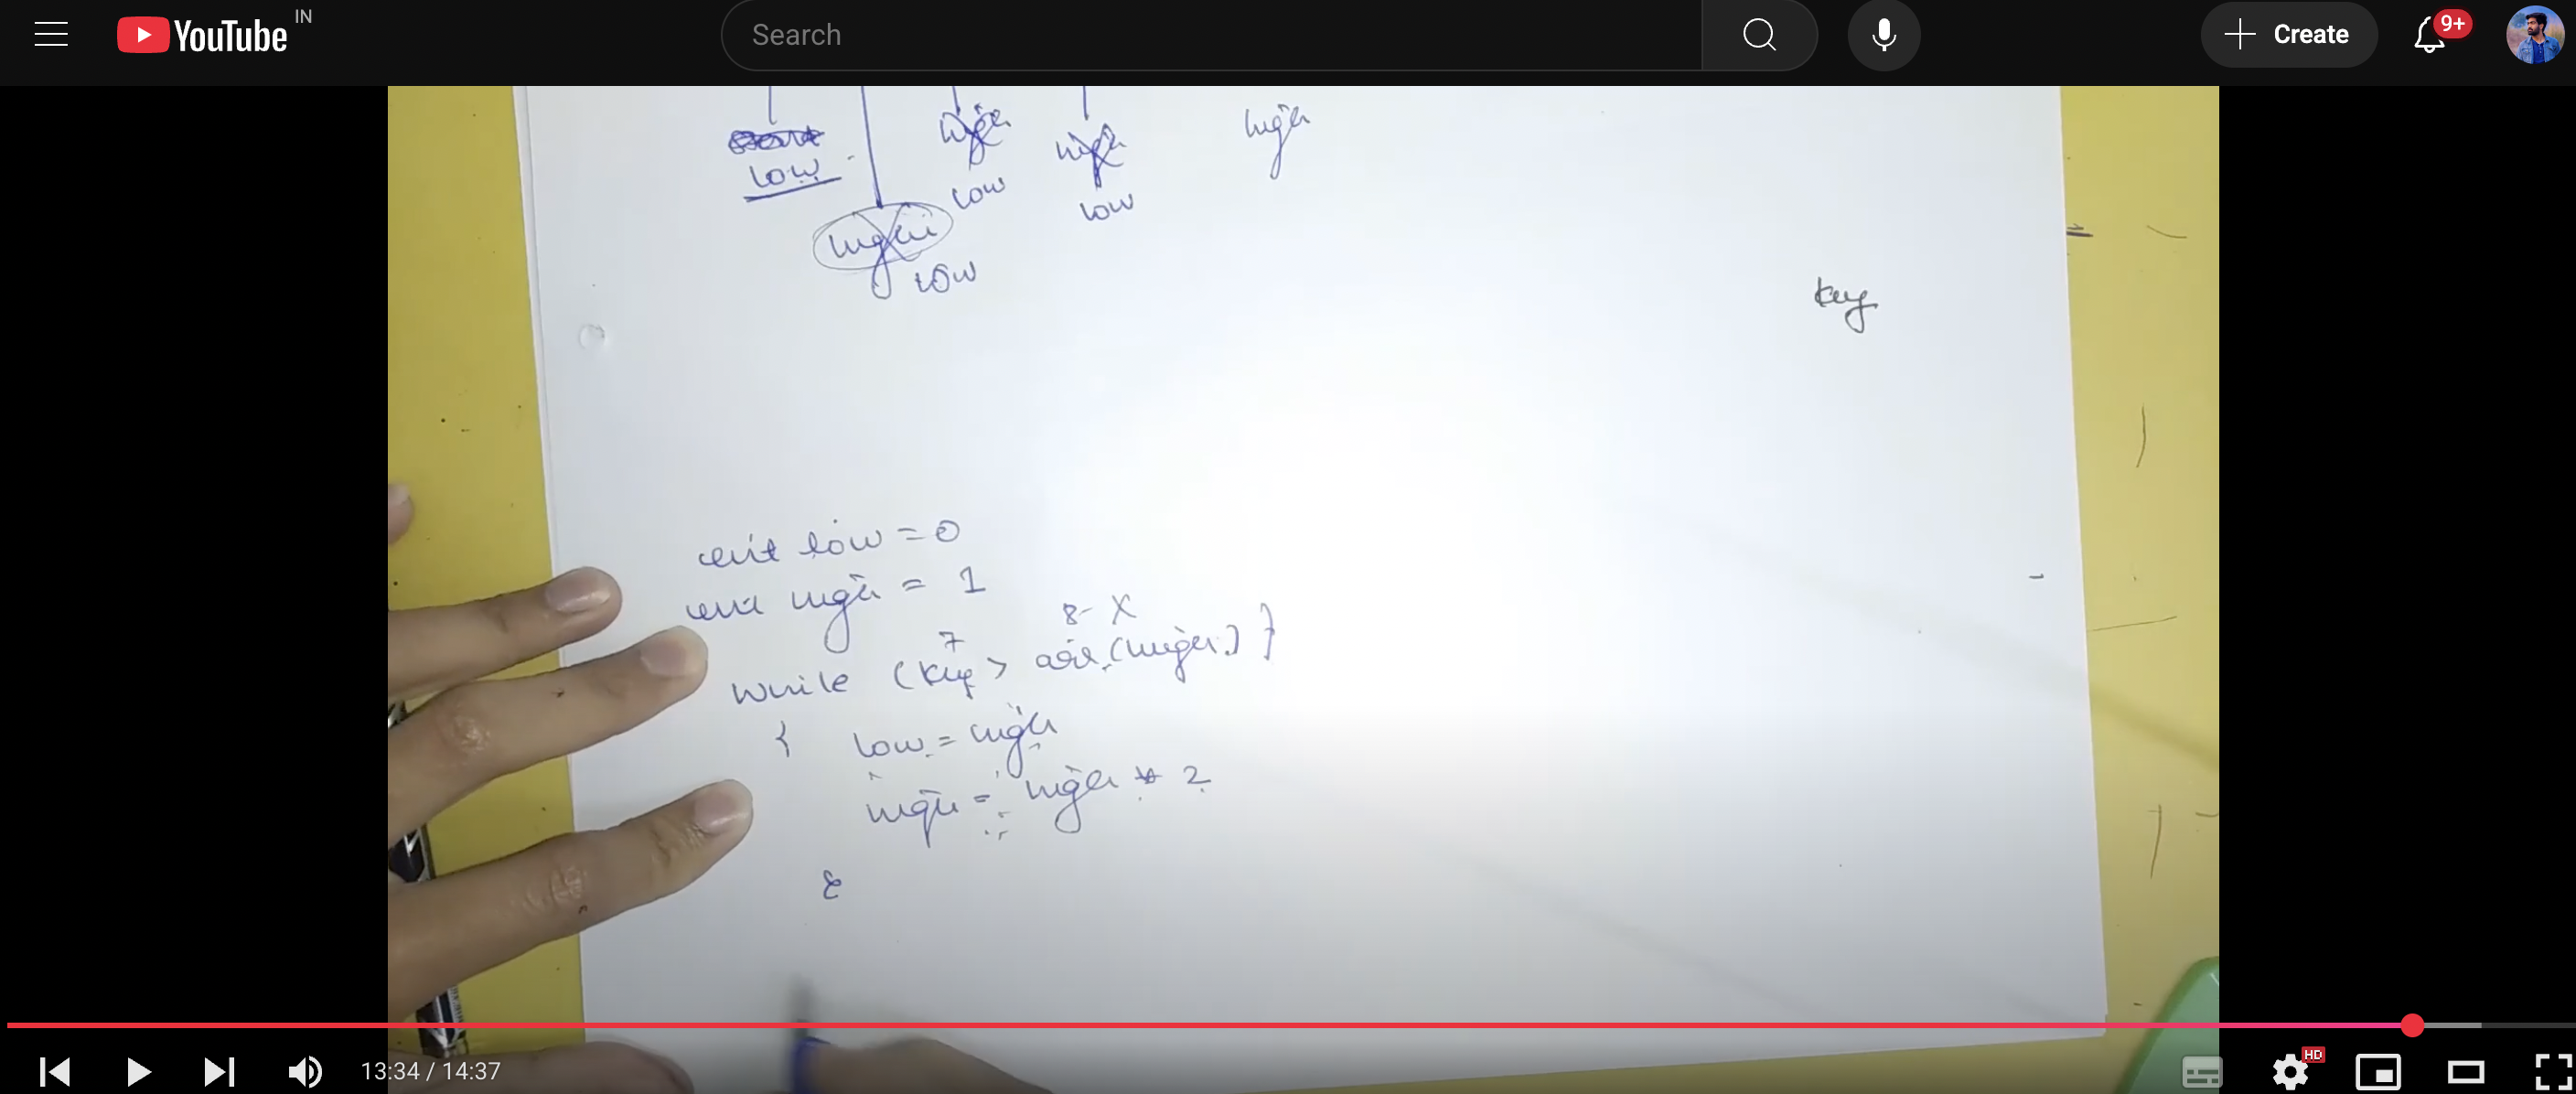 YouTube IN
Search
Create
9+
high
high
high
low
low
low
high
low
key
int low = 0
int high = 1
7 8- X
while (key > arr(high)}
{ low = high
high = high * 2
13:34 / 14:37
HD